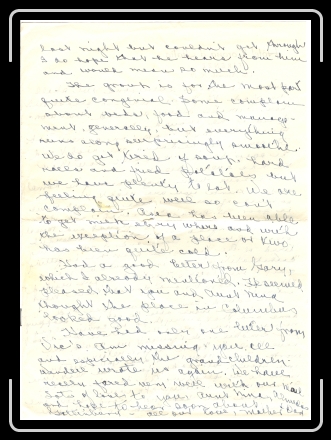 last night but couldn't get through
I do hope that he hears from him
and would mean so much.
The group is for the most part
quite congenial. Some complain
about beds, food and manage-
ment, generally, but everything
runs along surprisingly smooth.
We do get tired of soup, hard
rolls and fried potatoes but
we have plenty to eat. We are
feeling quite well so can't
complain. has been able
to get milk every where and with
the exception of a place or two,
has been quite cold.
Had a good letter from Gary,
which I already mentioned. He seemed
pleased that you and Aunt
thought the place in Columbus
looked good.
Have had only one letter from
Vic's. Am missing you all
and especially the grandchildren.
wrote us again. We have
really fared very well with our mail
Lots of love to you, Aunt
and hope to hear soon about
all our love, Mother & Dad